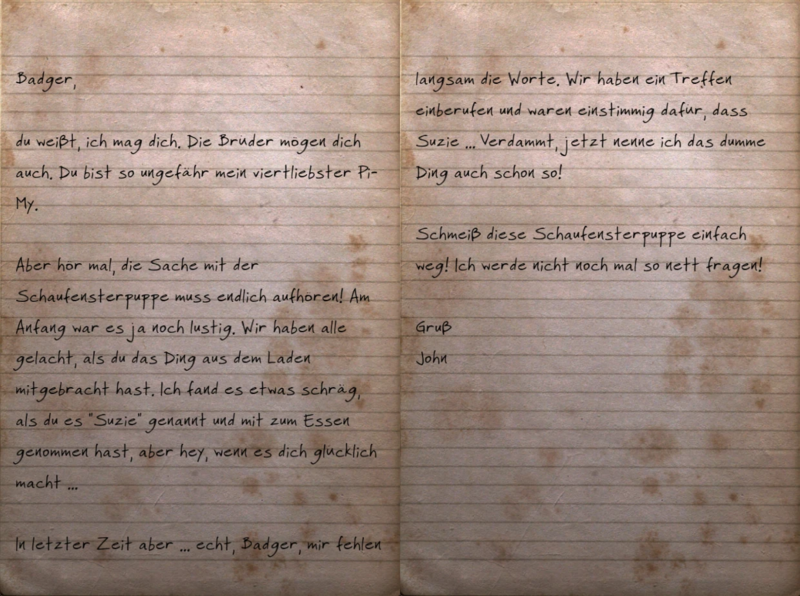 Badger,
du weißt, ich mag dich. Die Brüder mögen dich
auch. Du bist so ungefähr mein viertliebster Pi-
My.
Aber hör mal, die Sache mit der
Schaufensterpuppe muss endlich aufhören! Am
Anfang war es ja noch lustig. Wir haben alle
gelacht, als du das Ding aus dem Laden
mitgebracht hast. Ich fand es etwas schräg,
als du es "Suzie" genannt und mit zum Essen
genommen hast, aber hey, wenn es dich glücklich
macht ...
In letzter Zeit aber ... echt, Badger, mir fehlen
langsam die Worte. Wir haben ein Treffen
einberufen und waren einstimmig dafür, dass
Suzie ... Verdammt, jetzt nenne ich das dumme
Ding auch schon so!
Schmeiß diese Schaufensterpuppe einfach
weg! Ich werde nicht noch mal so nett fragen!
Gruß
John